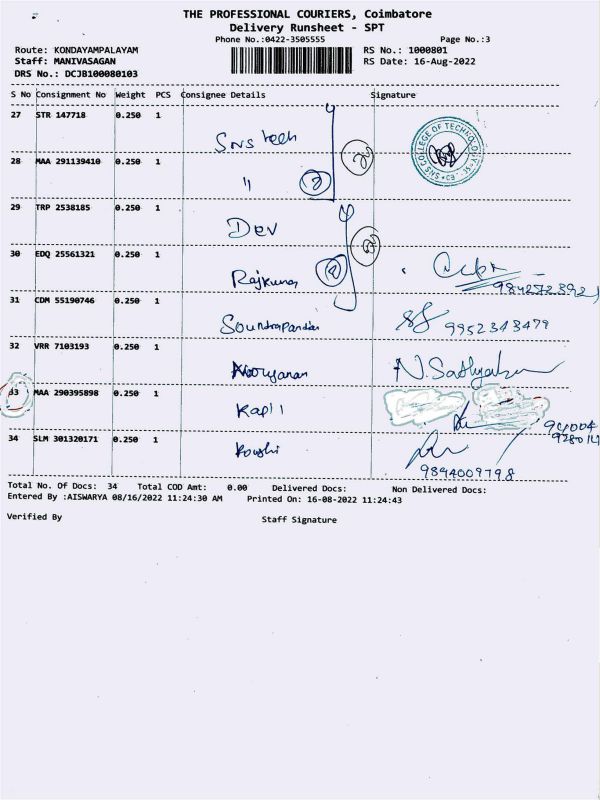 THE PROFESSIONAL COURIERS, Coimbatore
Delivery Runsheet - SPT
Phone No.:0422-3505555 Page No.:3
Route: KONDAYAMPALAYAM RS No.: 1000801
Staff: MANIVASAGAN RS Date: 16-Aug-2022
DRS No.: DCJB100080103
S No Consignment No Weight PCS Consignee Details Signature
27 STR 147718 0.250 1
SNS tech
SNS COLLEGE OF TECHNOLOGY
28 MAA 291139410 0.250 1
"
29 TRP 2538185 0.250 1
Dev
30 EDQ 25561321 0.250 1
Rajkumar
31 CDM 55190746 0.250 1
Soundrapandai 9952343479
32 VRR 7103193 0.250 1
N.Sathya
33 MAA 290395898 0.250 1
Kapil
34 SLM 301320171 0.250 1
Koushi
9894009798
Total No. Of Docs: 34 Total COD Amt: 0.00 Delivered Docs: Non Delivered Docs:
Entered By :AISWARYA 08/16/2022 11:24:30 AM Printed On: 16-08-2022 11:24:43
Verified By Staff Signature